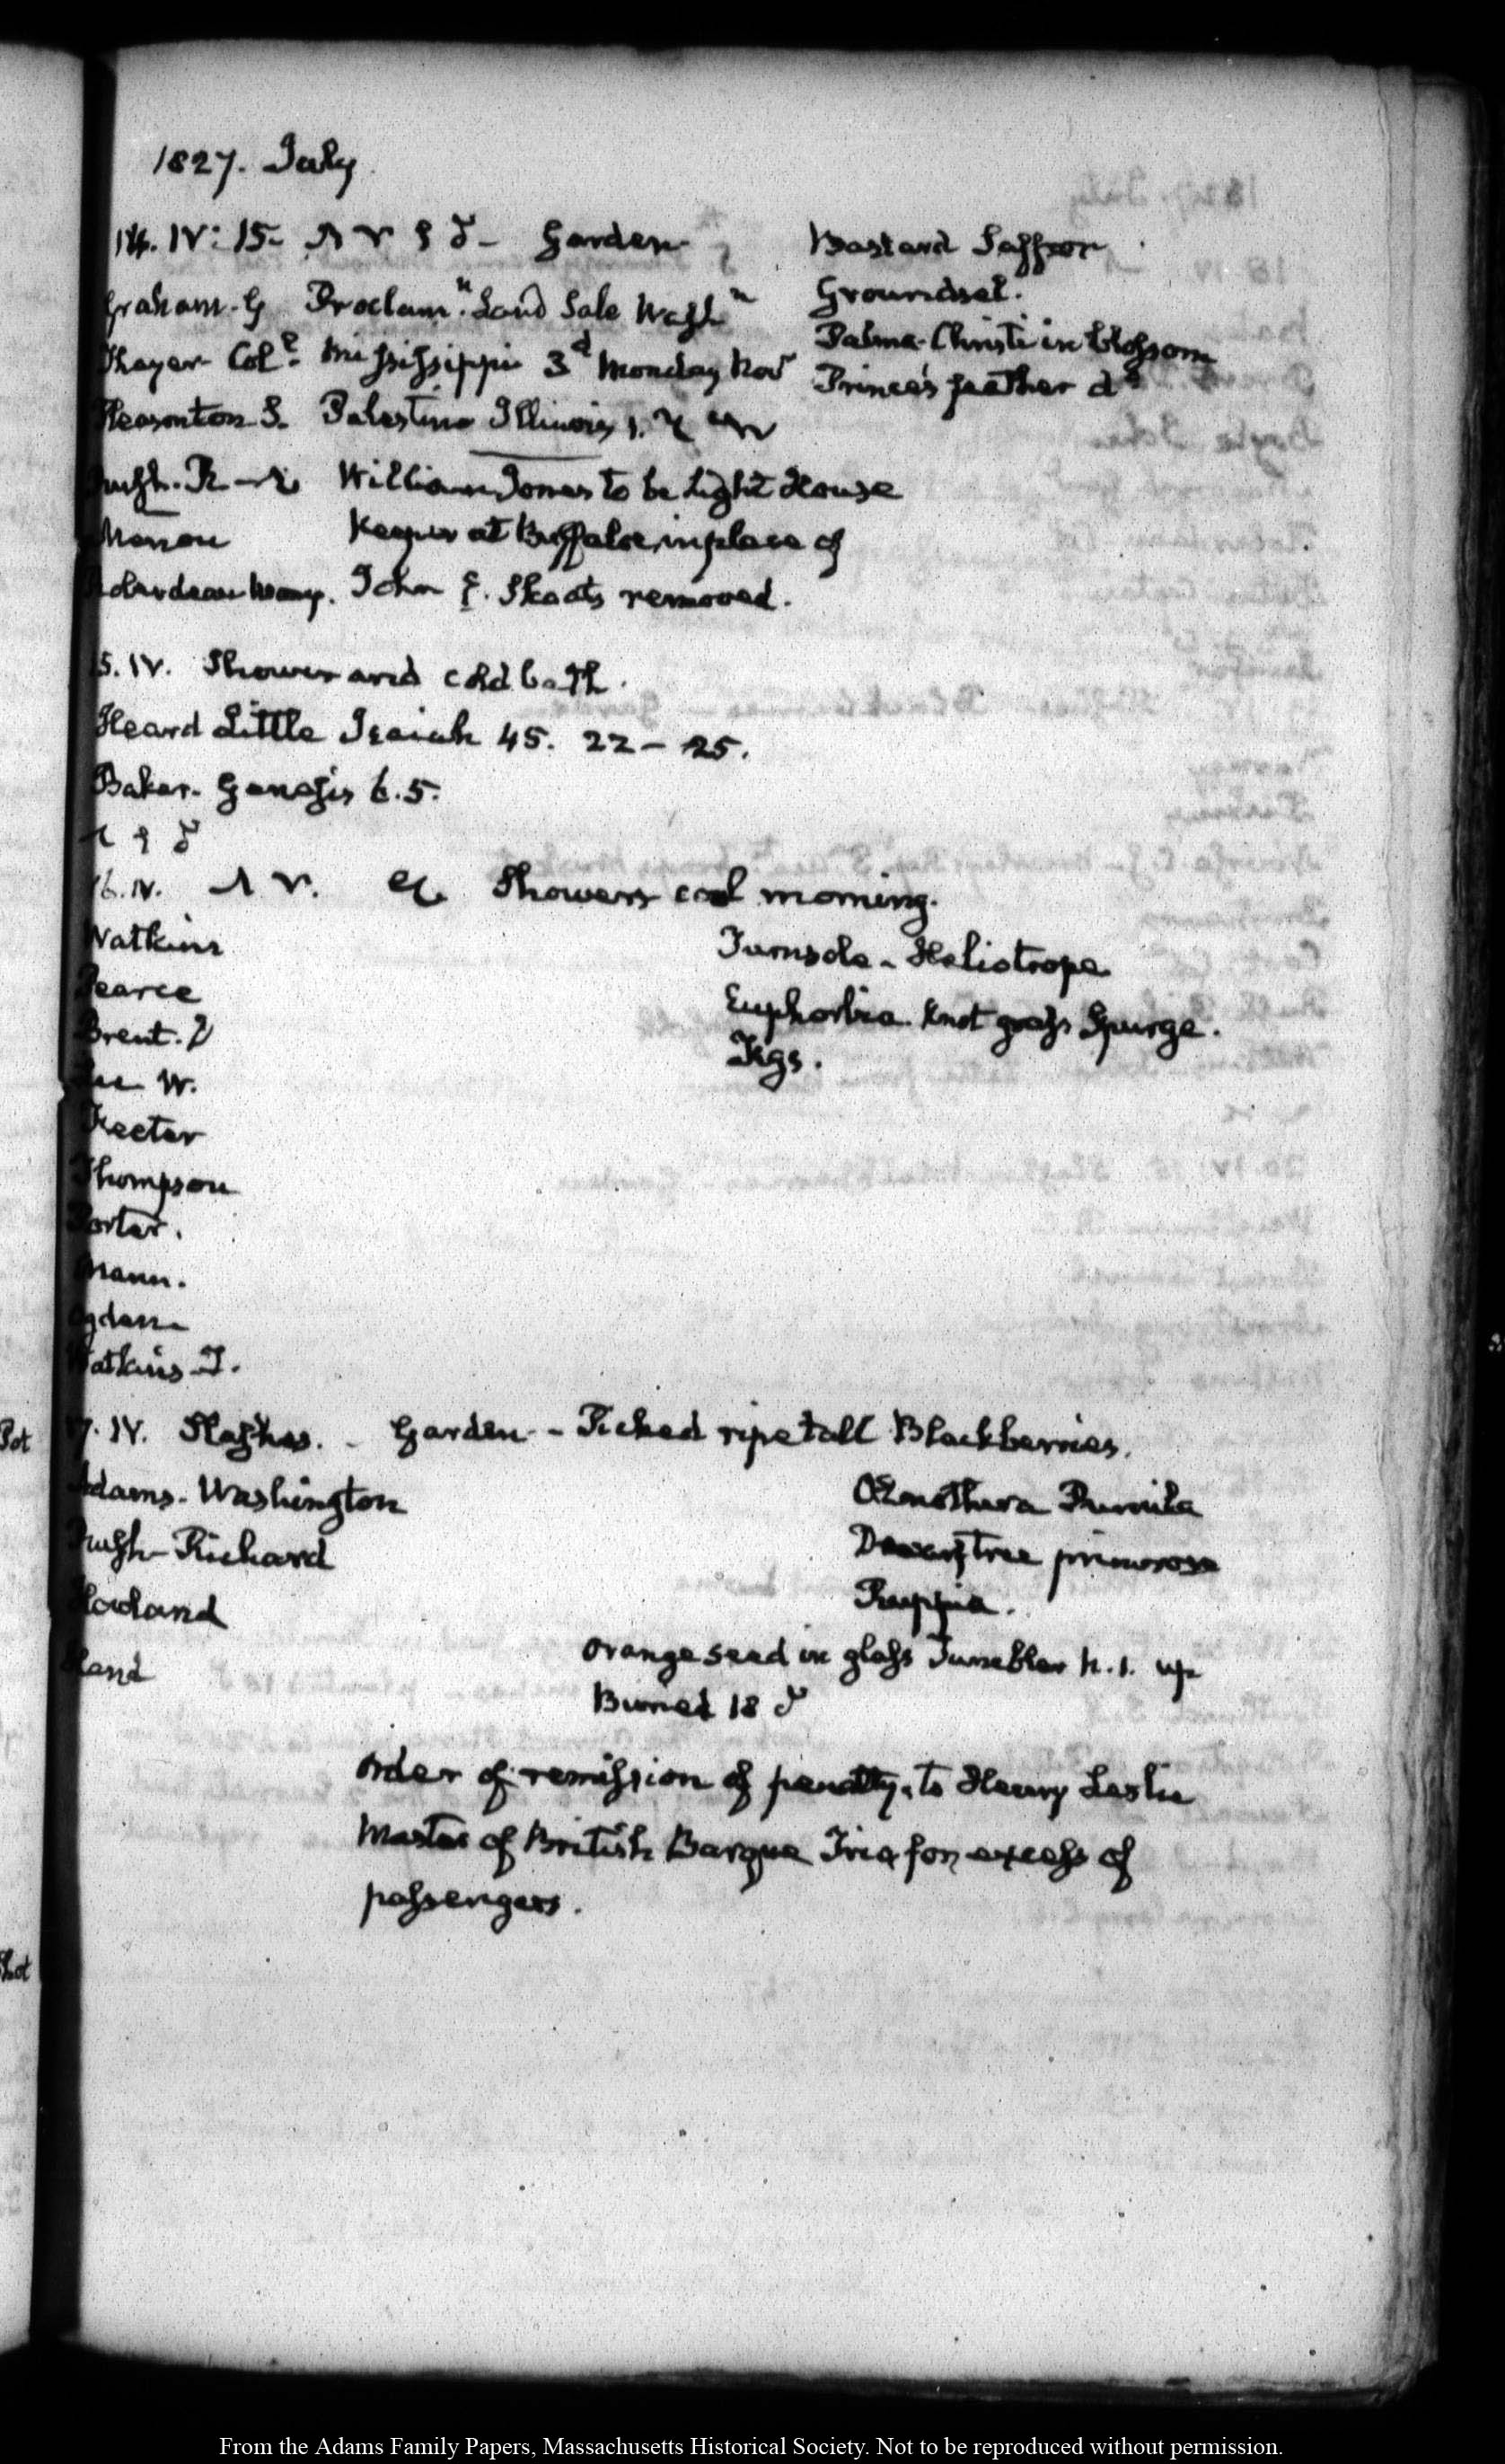 1827. July
14. IV: 15. Garden
Bastard Saffron
Groundsel.
Palma-Christi in blossom
Prince's feather do
Graham. G Proclamn. Land Sale Washn
Thayer Col. Mississippi 3d Monday Novr
Pleasonton S. Palestine Illinois 1.
Rush. R William Jones to be Light House
Keeper at Buffaloe, in place of
John E. Skaats removed.
15. IV. Shower and cold bath.
Heard Little Isaiah 45. 22-25.
Baker. Genesis 6.5.
16. IV. Showers cool morning.
Turnsole - Heliotrope
Euphorbia. Knot grass Spurge.
Figs.
Watkins
Pearce
Brent.
Lee W.
Rector
Thompson
Porter.
Mann.
Ogden
Watkins T.
17. IV. Slashes. - Garden - Picked ripe tall Blackberries.
Adams. Washington
Rush-Richard
Howland
Hand
OEnothera Pumila
Dwarf tree primrose
Ruppia.
Orange seed in glass Tumbler N. 1. up
Buried 18
Order of remission of penalty, to Henry Leslie
Master of British Barque Iris for excess of
passengers.
Pot
Shot
From the Adams Family Papers, Massachusetts Historical Society. Not to be reproduced without permission.